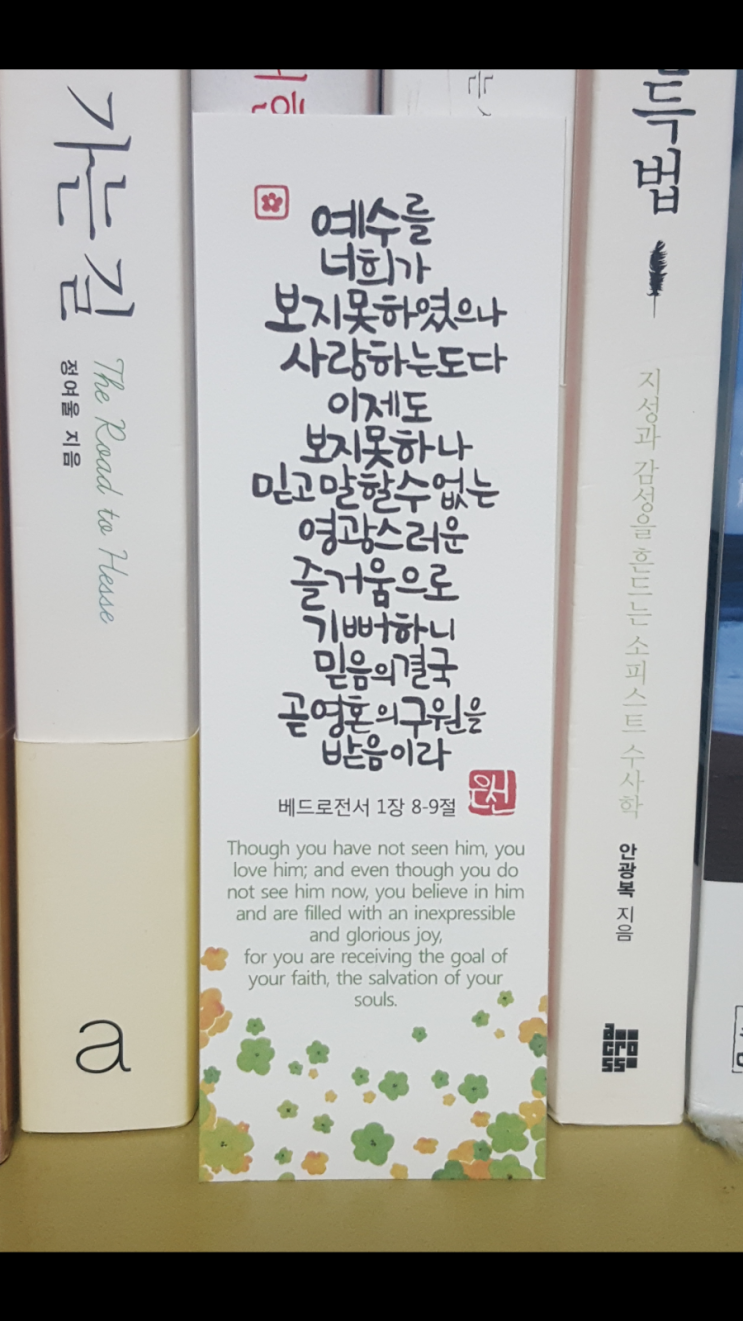 가는 길
The Road to Hesse
정여울 지음
a
예수를
너희가
보지못하였으나
사랑하는도다
이제도
보지못하나
믿고말할수없는
영광스러운
즐거움으로
기뻐하니
믿음의결국
곧영혼의구원을
받음이라
은선
베드로전서 1장 8-9절
Though you have not seen him, you
love him; and even though you do
not see him now, you believe in him
and are filled with an inexpressible
and glorious joy,
for you are receiving the goal of
your faith, the salvation of your
souls.
득법
지성과 감성을 흔드는 소피스트 수사학
안광복 지음
across